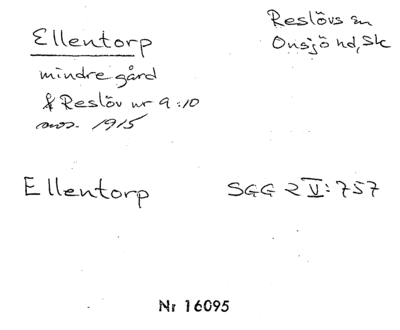 Ellentorp
Reslövs sn
Onsjö hd, Sk
mindre gård
å Reslöv nr 9:10
1915
Ellentorp
SGG 2 V:757
Nr 16095